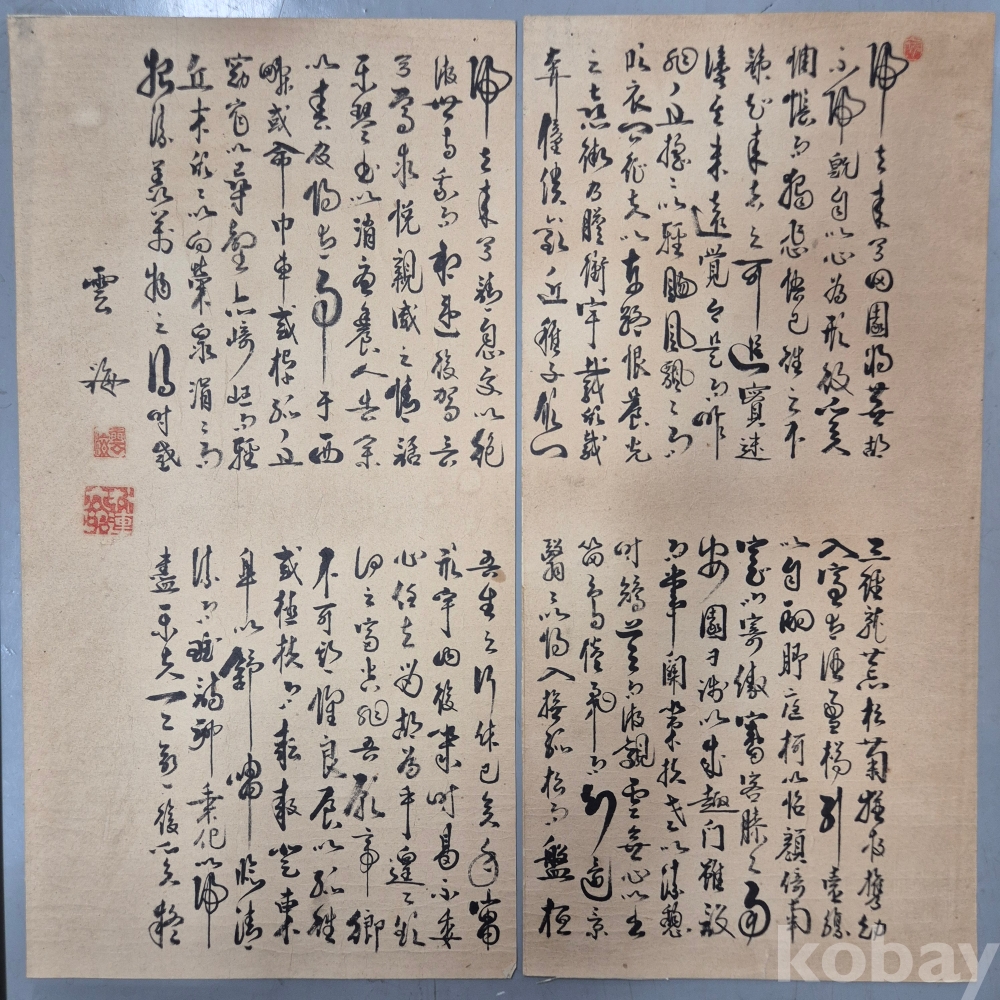 歸去來兮田園將蕪胡
不歸既自以心為形役奚
惆悵而獨悲悟已往之不
諫知來者之可追實迷
途其未遠覺今是而昨
非舟搖搖以輕颺風飄飄而
吹衣問征夫以前路恨晨光
之熹微乃瞻衡宇載欣載
奔僮僕歡迎稚子候門
三徑就荒松菊猶存攜幼
入室有酒盈樽引壺觴
以自酌眄庭柯以怡顏倚南
窗以寄傲審容膝之易
安園日涉以成趣門雖設
而常關策扶老以流憩
時矯首而遐觀雲無心以出
岫鳥倦飛而知還景
翳翳以將入撫孤松而盤桓
歸去來兮請息交以絕
游世與我而相違復駕言
兮焉求悅親戚之情話
樂琴書以消憂農人告余
以春及將有事于西
疇或命巾車或棹孤舟既
窈窕以尋壑亦崎嶇而經
丘木欣欣以向榮泉涓涓而
始流善萬物之得時感
吾生之行休已矣乎寓
形宇內復幾時曷不委
心任去留胡為乎遑遑欲
何之富貴非吾願帝鄉
不可期懷良辰以孤往
或植杖而耘耔登東
皋以舒嘯臨清
流而賦詩聊乘化以歸
盡樂夫天命復奚疑
雲海
kobay